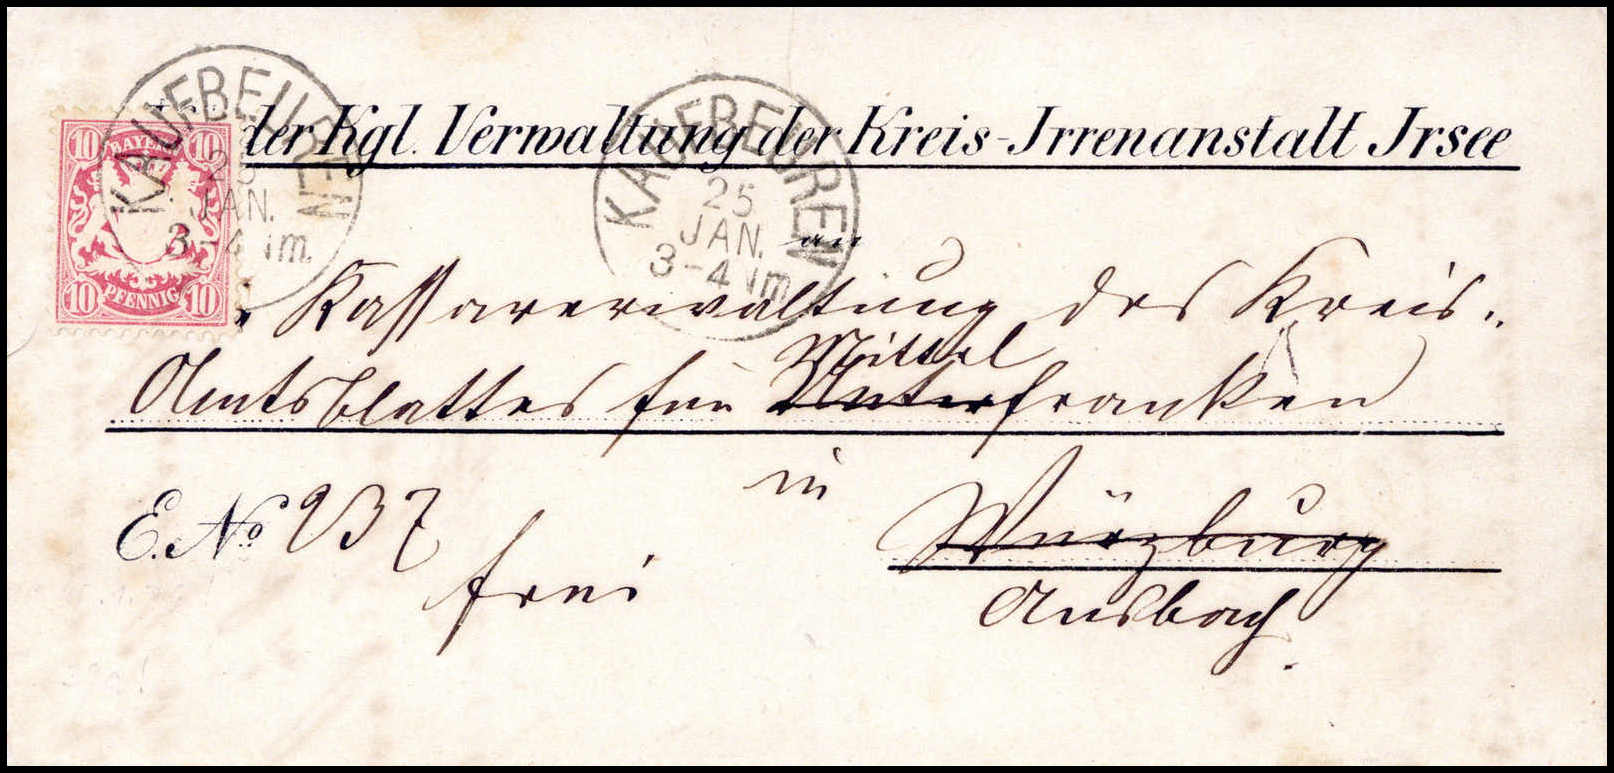 KAUFBEUREN
25
JAN.
3-4 Nm.
KAUFBEUREN
25
JAN.
3-4 Nm
10 BAYERN 10
10 PFENNIG 10
der Kgl. Verwaltung der Kreis-Irrenanstalt Irsee
an
Kassaverwaltung des Kreis-
Mittel
Amtsblattes für Unterfranken
in
E. No 237
Würzburg
frei
Ansbach.